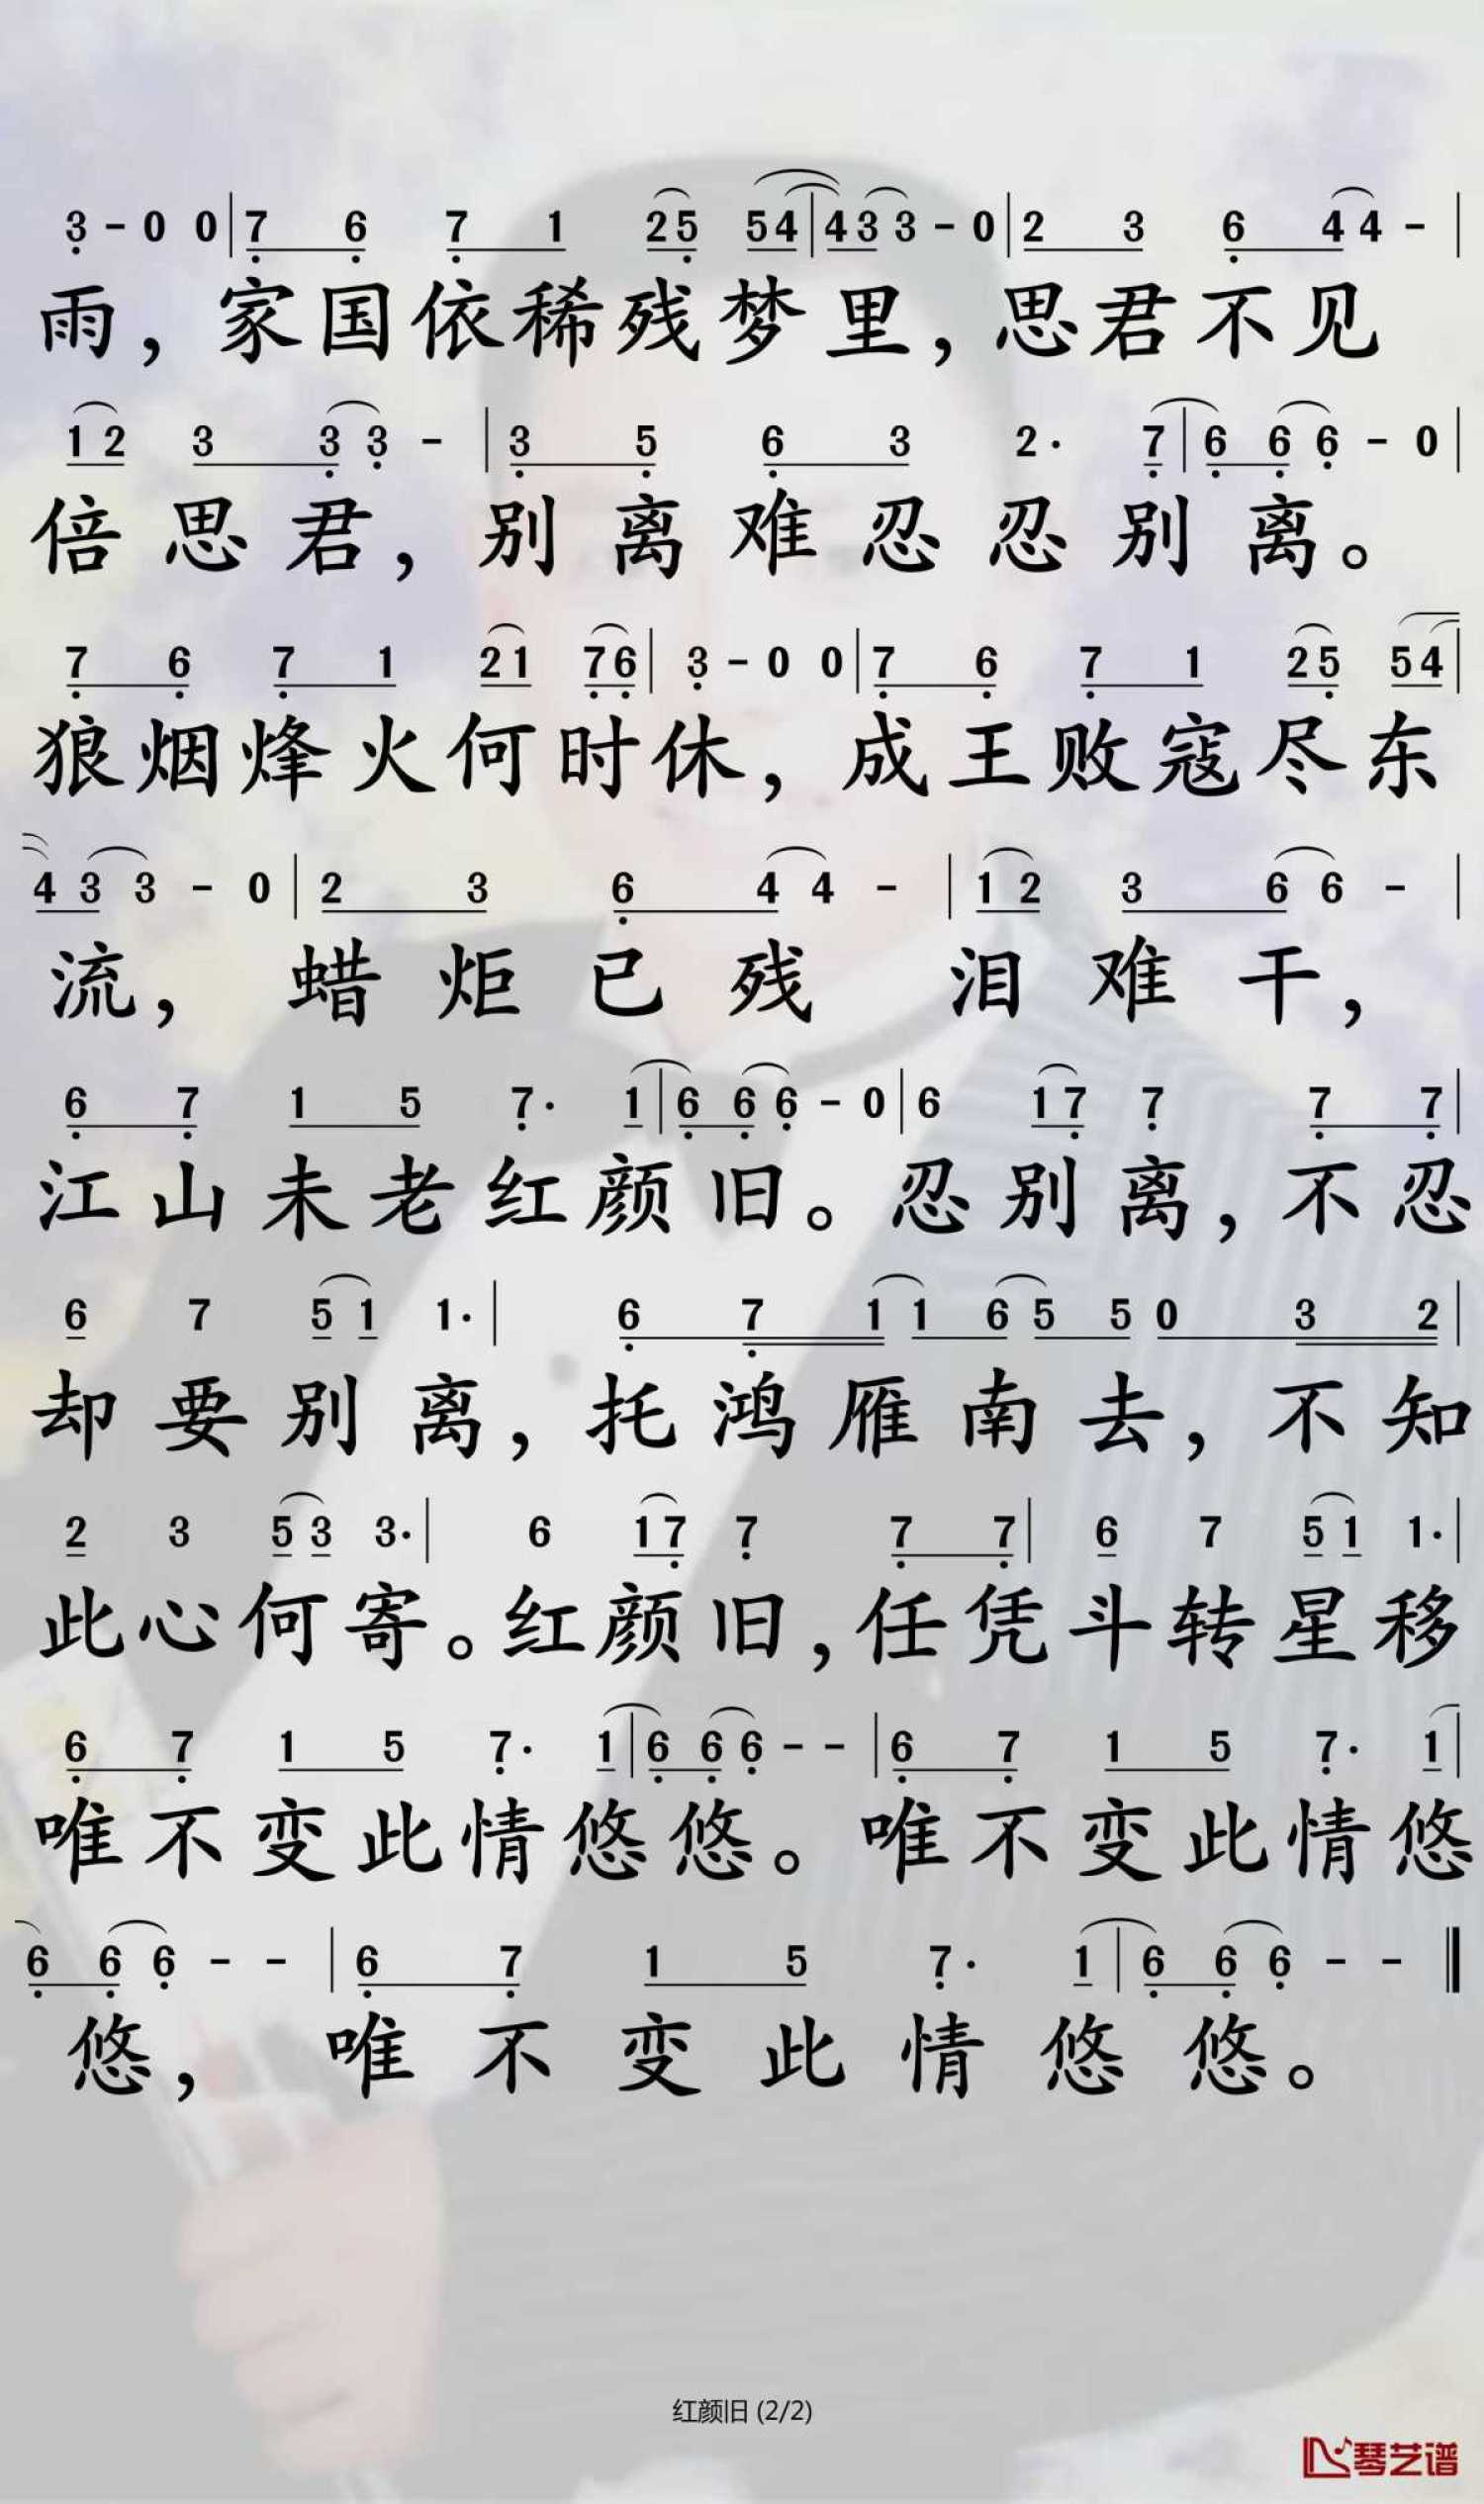 3 - 0 0 | 7 6 7 1 2 5 5 4 | 4 3 3 - 0 | 2 3 6 4 4 - |
雨，家国依稀残梦里，思君不见
1 2 3 3 3 - | 3 5 6 3 2· 7 | 6 6 6 - 0 |
倍思君，别离难忍忍别离。
7 6 7 1 2 1 7 6 | 3 - 0 0 | 7 6 7 1 2 5 5 4 |
狼烟烽火何时休，成王败寇尽东
4 3 3 - 0 | 2 3 6 4 4 - | 1 2 3 6 6 - |
流，蜡炬已残泪难干，
6 7 1 5 7· 1 | 6 6 6 - 0 | 6 1 7 7 7 7 |
江山未老红颜旧。忍别离，不忍
6 7 5 1 1· | 6 7 1 1 6 5 5 0 3 2 |
却要别离，托鸿雁南去，不知
2 3 5 3 3· | 6 1 7 7 7 7 | 6 7 5 1 1· |
此心何寄。红颜旧，任凭斗转星移
6 7 1 5 7· 1 | 6 6 6 - - | 6 7 1 5 7· 1 |
唯不变此情悠悠。唯不变此情悠
6 6 6 - - | 6 7 1 5 7· 1 | 6 6 6 - - ‖
悠，唯不变此情悠悠。
红颜旧 (2/2)
琴艺谱